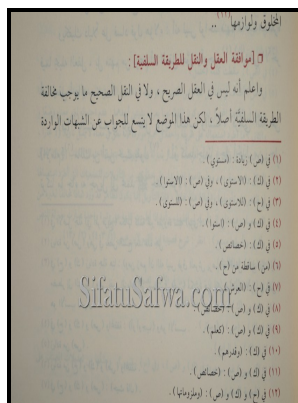 المخلوق ولوازمها(١٢)..
□ [موافقة العقل والنقل للطريقة السلفية] :
واعلم أنه ليس في العقل الصريح ، ولا في النقل الصحيح ما يوجب مخالفة
الطريقة السلفيَّة أصلاً ، لكن هذا الموضع لا يتسع للجواب عن الشبهات الواردة
(١) في (ص) زيادة : (مستوي).
(٢) في (ك) : (الاستوى) ، وفي (ص) : (الاستوا).
(٣) في (ح) : (للاستوى) ، وفي (ص) : (للستوى).
(٤) في (ك) و (ص) : (استوا).
(٥) في (ك) : (خصائص).
(٦) (من) ساقطة من (ح).
(٧) في (ح) : (العرش)
(٨) في (ك) و (ص) : (خصائص)
(٩) في (ك) و (ص) : (كعلم).
(١٠) في (ك) : (وقدرهم).
(١١) في (ك) و (ص) : (خصائص).
(١٢) في (ح) و (ك) و (ص) : (وملزوماتها).
SifatuSafwa.com